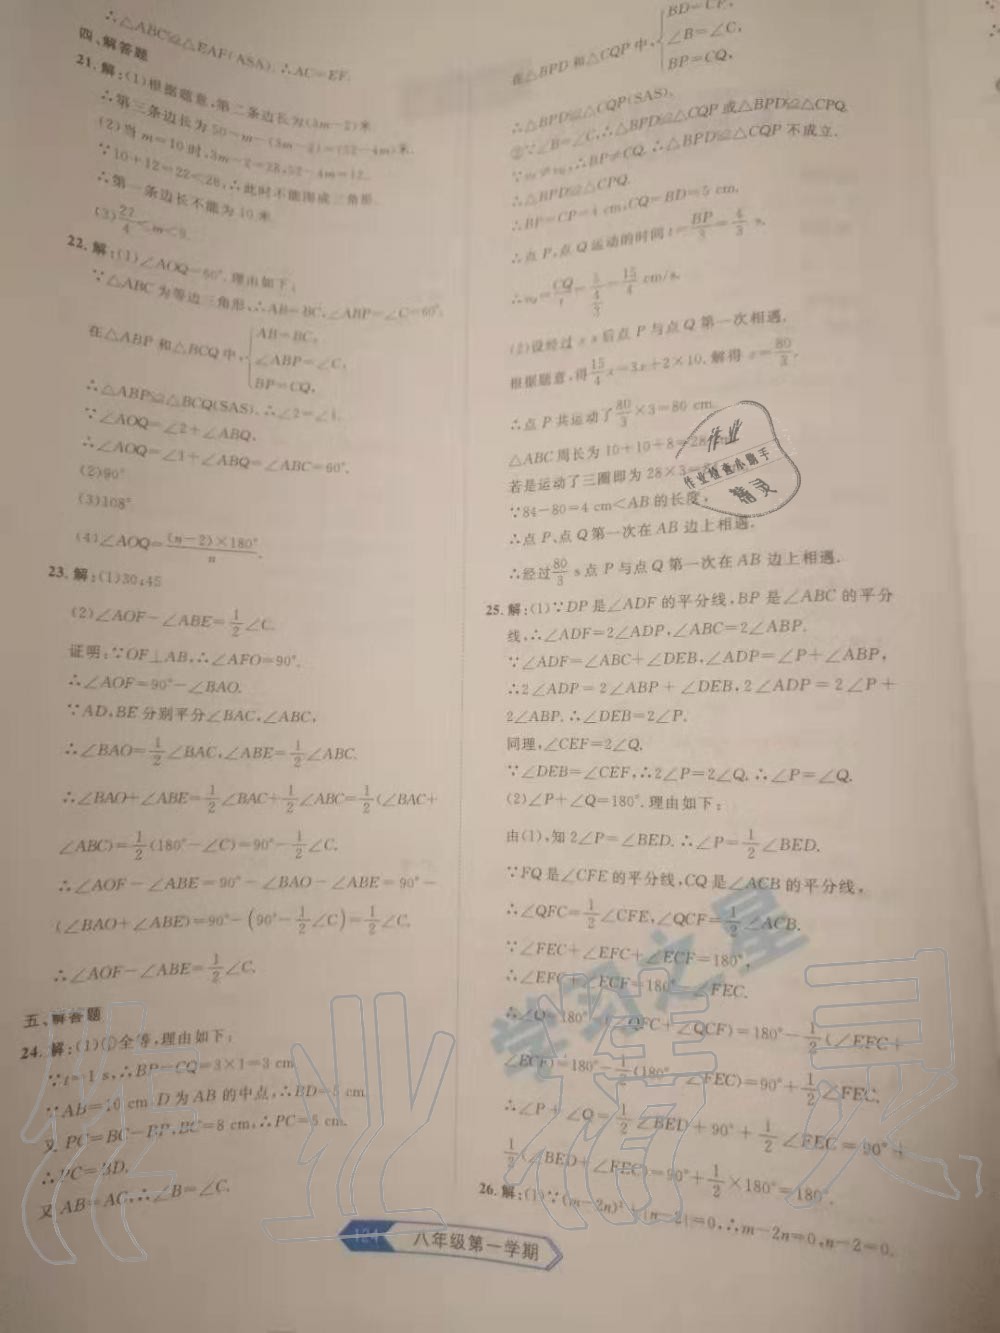 ∴△ABC≌△EAF(ASA).∴AC=EF.
四、解答题
21.解:(1)根据题意,第二条边长为(3m-2)米.
∴第三条边长为50-m-(3m-2)=(52-4m)米.
(2)当m=10时,3m-2=28,52-4m=12.
∵10+12=22<28,∴此时不能围成三角形.
∴第一条边长不能为10米.
(3)27/4<m<9.
22.解:(1)∠AOQ=60°.理由如下:
∵△ABC为等边三角形,∴AB=BC,∠ABP=∠C=60°.
在△ABP和△BCQ中,
AB=BC,
∠ABP=∠C,
BP=CQ,
∴△ABP≌△BCQ(SAS).∴∠2=∠1.
∵∠AOQ=∠2+∠ABQ,
∴∠AOQ=∠1+∠ABQ=∠ABC=60°.
(2)90°
(3)108°
(4)∠AOQ=(n-2)×180°/n.
23.解:(1)30;45
(2)∠AOF-∠ABE=1/2∠C.
证明:∵OF⊥AB,∴∠AFO=90°.
∴∠AOF=90°-∠BAO.
∵AD,BE分别平分∠BAC,∠ABC,
∴∠BAO=1/2∠BAC,∠ABE=1/2∠ABC.
∴∠BAO+∠ABE=1/2∠BAC+1/2∠ABC=1/2(∠BAC+
∠ABC)=1/2(180°-∠C)=90°-1/2∠C.
∴∠AOF-∠ABE=90°-∠BAO-∠ABE=90°-
(∠BAO+∠ABE)=90°-(90°-1/2∠C)=1/2∠C,
∴∠AOF-∠ABE=1/2∠C.
五、解答题
24.解:(1)①全等,理由如下:
∵t=1 s,∴BP=CQ=3×1=3 cm
∵AB=10 cm D为AB的中点,∴BD=5 cm
又PC=BC-BP,BC=8 cm,∴PC=5 cm.
∴PC=BD.
又AB=AC,∴∠B=∠C.
在△BPD和△CQP中,
BD=CP,
∠B=∠C,
BP=CQ,
∴△BPD≌△CQP(SAS).
②∵∠B=∠C,∴△BPD≌△CQP或△BPD≌△CPQ.
∴BP≠CQ.∴△BPD≌△CQP不成立.
∴△BPD≌△CPQ.
∴BP=CP=4 cm,CQ=BD=5 cm.
∴点P,点Q运动的时间t=BP/3=4/3 s.
∴=CQ/t=5/(4/3)=15/4 cm/s.
(2)设经过x s后点P与点Q第一次相遇.
根据题意,得15/4x=3x+2×10.解得x=80/3.
∴点P共运动了80/3×3=80 cm.
△ABC周长为10+10+8=28
若是运动了三圈即为28×3=
∵84-80=4 cm<AB的长度,
∴点P、点Q第一次在AB边上相遇.
∴经过80/3 s点P与点Q第一次在AB边上相遇.
25.解:(1)∵DP是∠ADF的平分线,BP是∠ABC的平分
线,∴∠ADF=2∠ADP,∠ABC=2∠ABP.
∵∠ADF=∠ABC+∠DEB,∠ADP=∠P+∠ABP,
∴2∠ADP=2∠ABP+∠DEB,2∠ADP=2∠P+
2∠ABP.∴∠DEB=2∠P.
同理,∠CEF=2∠Q.
∵∠DEB=∠CEF,∴2∠P=2∠Q.∴∠P=∠Q.
(2)∠P+∠Q=180°.理由如下:
由(1),知2∠P=∠BED.∴∠P=1/2∠BED.
∵FQ是∠CFE的平分线,CQ是∠ACB的平分线,
∴∠QFC=1/2∠CFE,∠QCF=1/2∠ACB.
∵∠FEC+∠EFC+∠ECF=180°,
∴∠EFC+∠ECF=180°-∠FEC.
∴∠Q=180°-(∠QFC+∠QCF)=180°-1/2(∠EFC+
∠ECF)=180°-1/2(180°-∠FEC)=90°+1/2∠FEC.
∴∠P+∠Q=1/2∠BED+90°+1/2∠FEC=90°+
1/2(∠BED+∠FEC)=90°+1/2×180°=180°.
26.解:(1)∵(m-2n)²+|n-2|=0,∴m-2n=0,n-2=0.
124 八年级第一学期
作业
作业检查小助手
精灵
学习之星
作业精灵